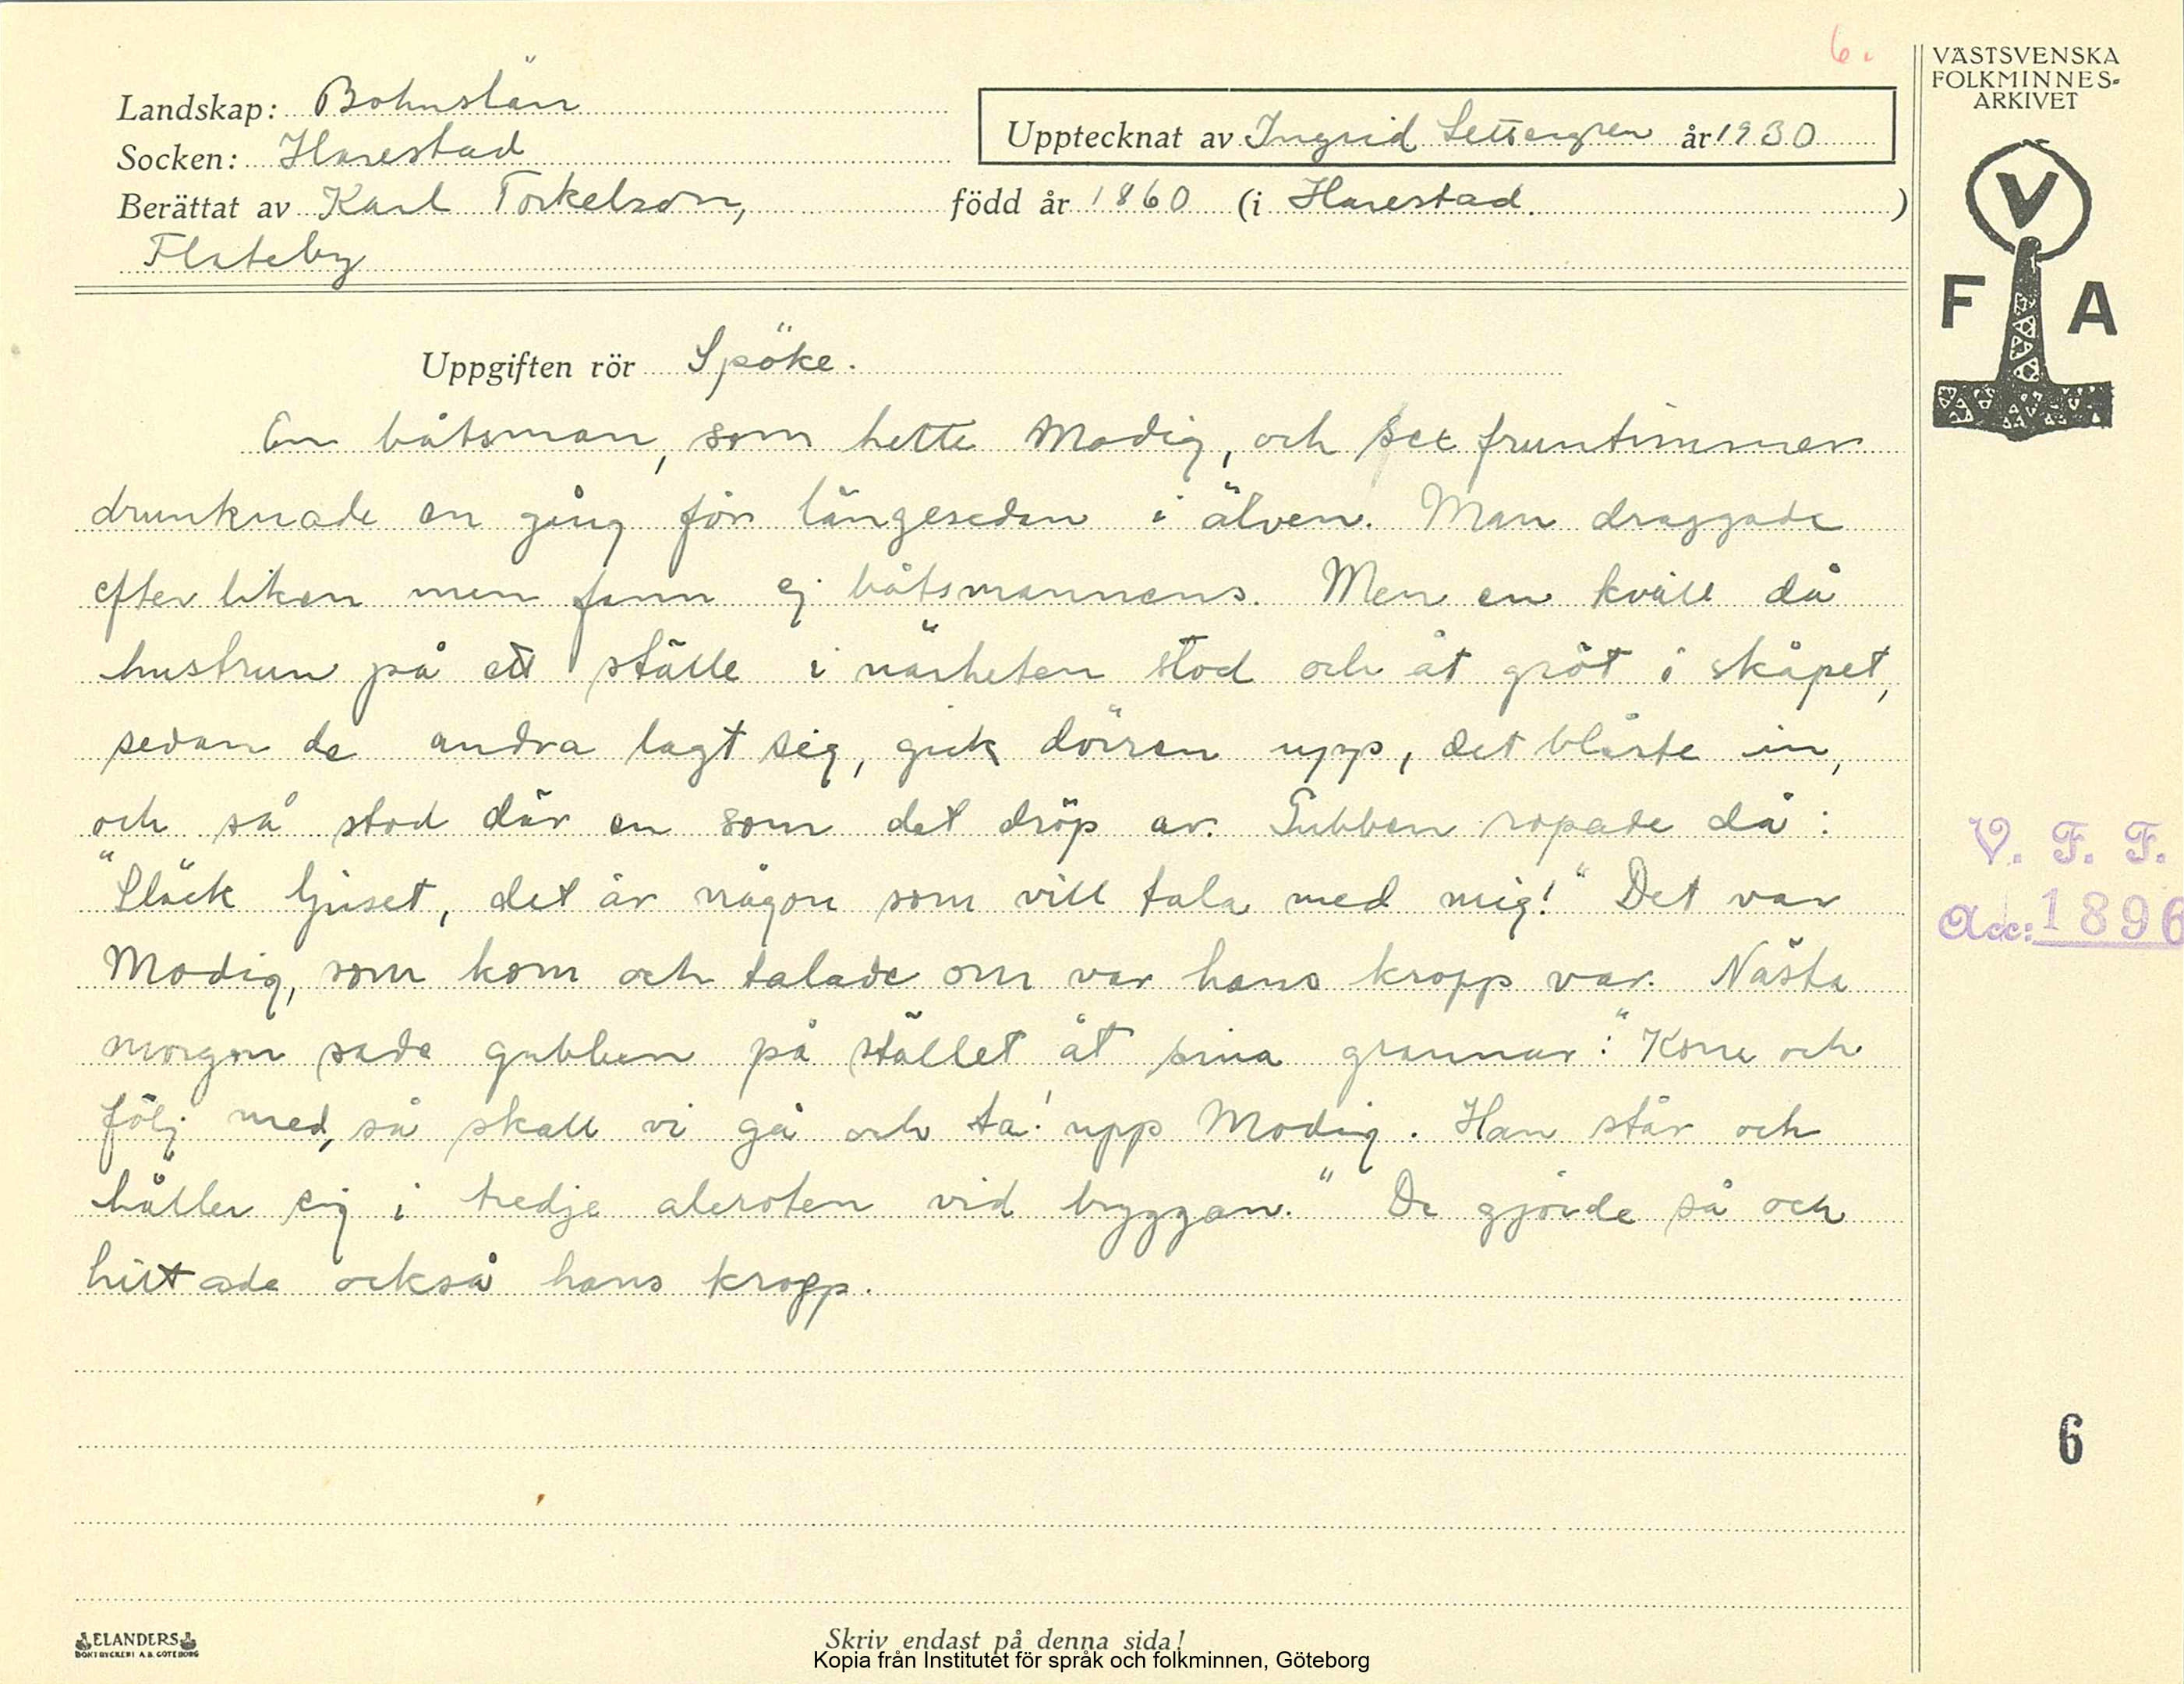 6.
VÄSTSVENSKA
FOLKMINNES-
ARKIVET
Landskap: Bohuslän
Upptecknat av Ingrid Settergren år 1930
Socken: Harestad
Berättat av Karl Torkelson, född år 1860 (i Harestad.)
Flateby
V
F A
Uppgiften rör Spöke.
En båtsman, som hette Modig, och sex fruntimmer
drunknade en gång för längesedan i älven. Man draggade
efter liken men fann ej båtsmannens. Men en kväll då
hustrun på ett ställe i närheten stod och åt gröt i skåpet,
sedan de andra lagt sig, gick dörren upp, det blåste in,
och så stod där en som det dröp av. Gubben ropade då:
"Släck ljuset, det är någon som vill tala med mig!" Det var
Modig, som kom och talade om var hans kropp var. Nästa
morgon sade gubben på stället åt sina grannar: "Kom och
följ med, så skall vi gå och ta' upp Modig. Han står och
håller sig i tredje aleroten vid bryggan." De gjorde så och
hittade också hans kropp.
V. F. F.
Acc: 1896
6
ELANDERS
BOKTRYCKERI A.B. GÖTEBORG
Skriv endast på denna sida!
Kopia från Institutet för språk och folkminnen, Göteborg